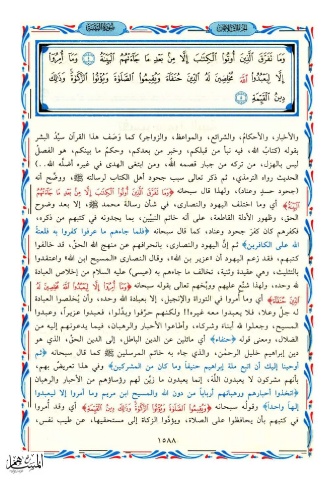 سورة البينة
الجزء الثلاثون
وَمَا تَفَرَّقَ الَّذِينَ أُوتُوا الْكِتَابَ إِلَّا مِنْ بَعْدِ مَا جَاءَتْهُمُ الْبَيِّنَةُ ۝ وَمَا أُمِرُوا
إِلَّا لِيَعْبُدُوا اللَّهَ مُخْلِصِينَ لَهُ الدِّينَ حُنَفَاءَ وَيُقِيمُوا الصَّلَاةَ وَيُؤْتُوا الزَّكَاةَ وَذَلِكَ
دِينُ الْقَيِّمَةِ ۝
والأخبار، والأحكام، والشرائع، والمواعظ، والزواجر) كما وَصَف هذا القرآن سيِّدُ البشر
بقوله (كتابُ الله، فيه نبأ من قبلكم، وخبر من بعدكم، وحكمُ ما بينكم، هو الفصلُ
ليس بالهزل، من تركه من جبار قصمه الله، ومن ابتغى الهدى في غيره أضلَّه الله..)
الحديث رواه الترمذي، ثم ذكر تعالى سبب جحود أهل الكتاب لرسالته ﷺ، ووضَّح أنه
(جحود حسدٍ وعناد)، ولهذا قال سبحانه ﴿وَمَا تَفَرَّقَ الَّذِينَ أُوتُوا الْكِتَابَ إِلَّا مِنْ بَعْدِ مَا جَاءَتْهُمُ
الْبَيِّنَةُ﴾ أي وما اختلف اليهود والنصارى، في شأن رسالة محمد ﷺ، إلا بعد وضوح
الحق، وظهور الأدلة القاطعة، على أنه خاتم النبيِّين، بما يجدونه في كتبهم من ذكره،
فكفرهم كان كفرَ جحود وعناد، كما قال سبحانه ﴿فلما جاءهم ما عرفوا كفروا به فلعنةُ
الله على الكافرين﴾ ثم إنَّ اليهود والنصارى، بانحرافهم عن منهج الله الحق، قد خالفوا
كتبهم، فقد زعم اليهود أن «عزير بن الله»، وقال النصارى «المسيح ابن الله» واعتقدوا
بالتثليث، وهي عقيدة وثنية، تخالف ما جاءهم به (عيسى) عليه السلام من إخلاص العبادة
لله وحده، ولهذا شنَّع عليهم ووبَّخهم تعالى بقوله سبحانه ﴿وَمَا أُمِرُوا إِلَّا لِيَعْبُدُوا اللَّهَ مُخْلِصِينَ لَهُ
الدِّينَ حُنَفَاءَ﴾ أي وما أمروا في التوراة والإنجيل، إلا بعبادة الله وحده، وأن يُخلصوا العبادة
له جلَّ وعلا، فلا يعبدوا معه غيره!! ولكنهم حرَّفوا وبدَّلوا، فعبدوا عزيراً، وعبدوا
المسيح، وجعلوا لله أبناءً وشركاء، وأطاعوا الأحبار والرهبان، فيما يدعونهم إليه من
الضلال، ومعنى قوله ﴿حنفاء﴾ أي مائلين عن الدين الباطل، إلى الدين الحق، الذي هو
دين إبراهيم خليل الرحمن، والذي جاء به خاتم المرسلين ﷺ كما قال سبحانه ﴿ثم
أوحينا إليك أن اتبع ملة إبراهيم حنيفاً وما كان من المشركين﴾ وفي هذا تعريضٌ بهم،
بأنهم مشركون لا يعبدون الله، إنما يعبدون ما زيَّن لهم رؤساؤهم من الأحبار والرهبان
﴿اتخذوا أحبارهم ورهبانهم أرباباً من دون الله والمسيح ابن مريم وما أمروا إلا ليعبدوا
إلهاً واحداً﴾ وقوله سبحانه ﴿وَيُقِيمُوا الصَّلَاةَ وَيُؤْتُوا الزَّكَاةَ وَذَلِكَ دِينُ الْقَيِّمَةِ﴾ أي وقد أمروا
في كتبهم بأن يحافظوا على الصلاة، ويؤدُّوا الزكاة إلى مستحقيها، عن طيب نفس،
١٥٨٨